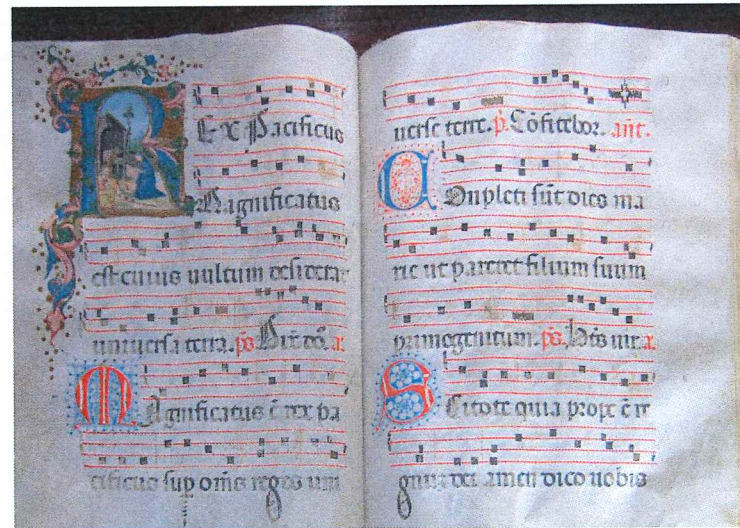 Rex Pacificus
Magnificatus
est cuius uultum desiderat
uniuersa terra. ps. Dixit dn̄s. a.
Magnificatus ē rex pa
cificus sup om̄s reges uni
uerse terre. p̄. Cōfitebor. an̄t.
Conpleti sūt dies ma
rie ut pareret filium suum
primogenitum. ps. Btūs uir. a.
Scitote quia prope ē re
gnum dei amen dico uobis